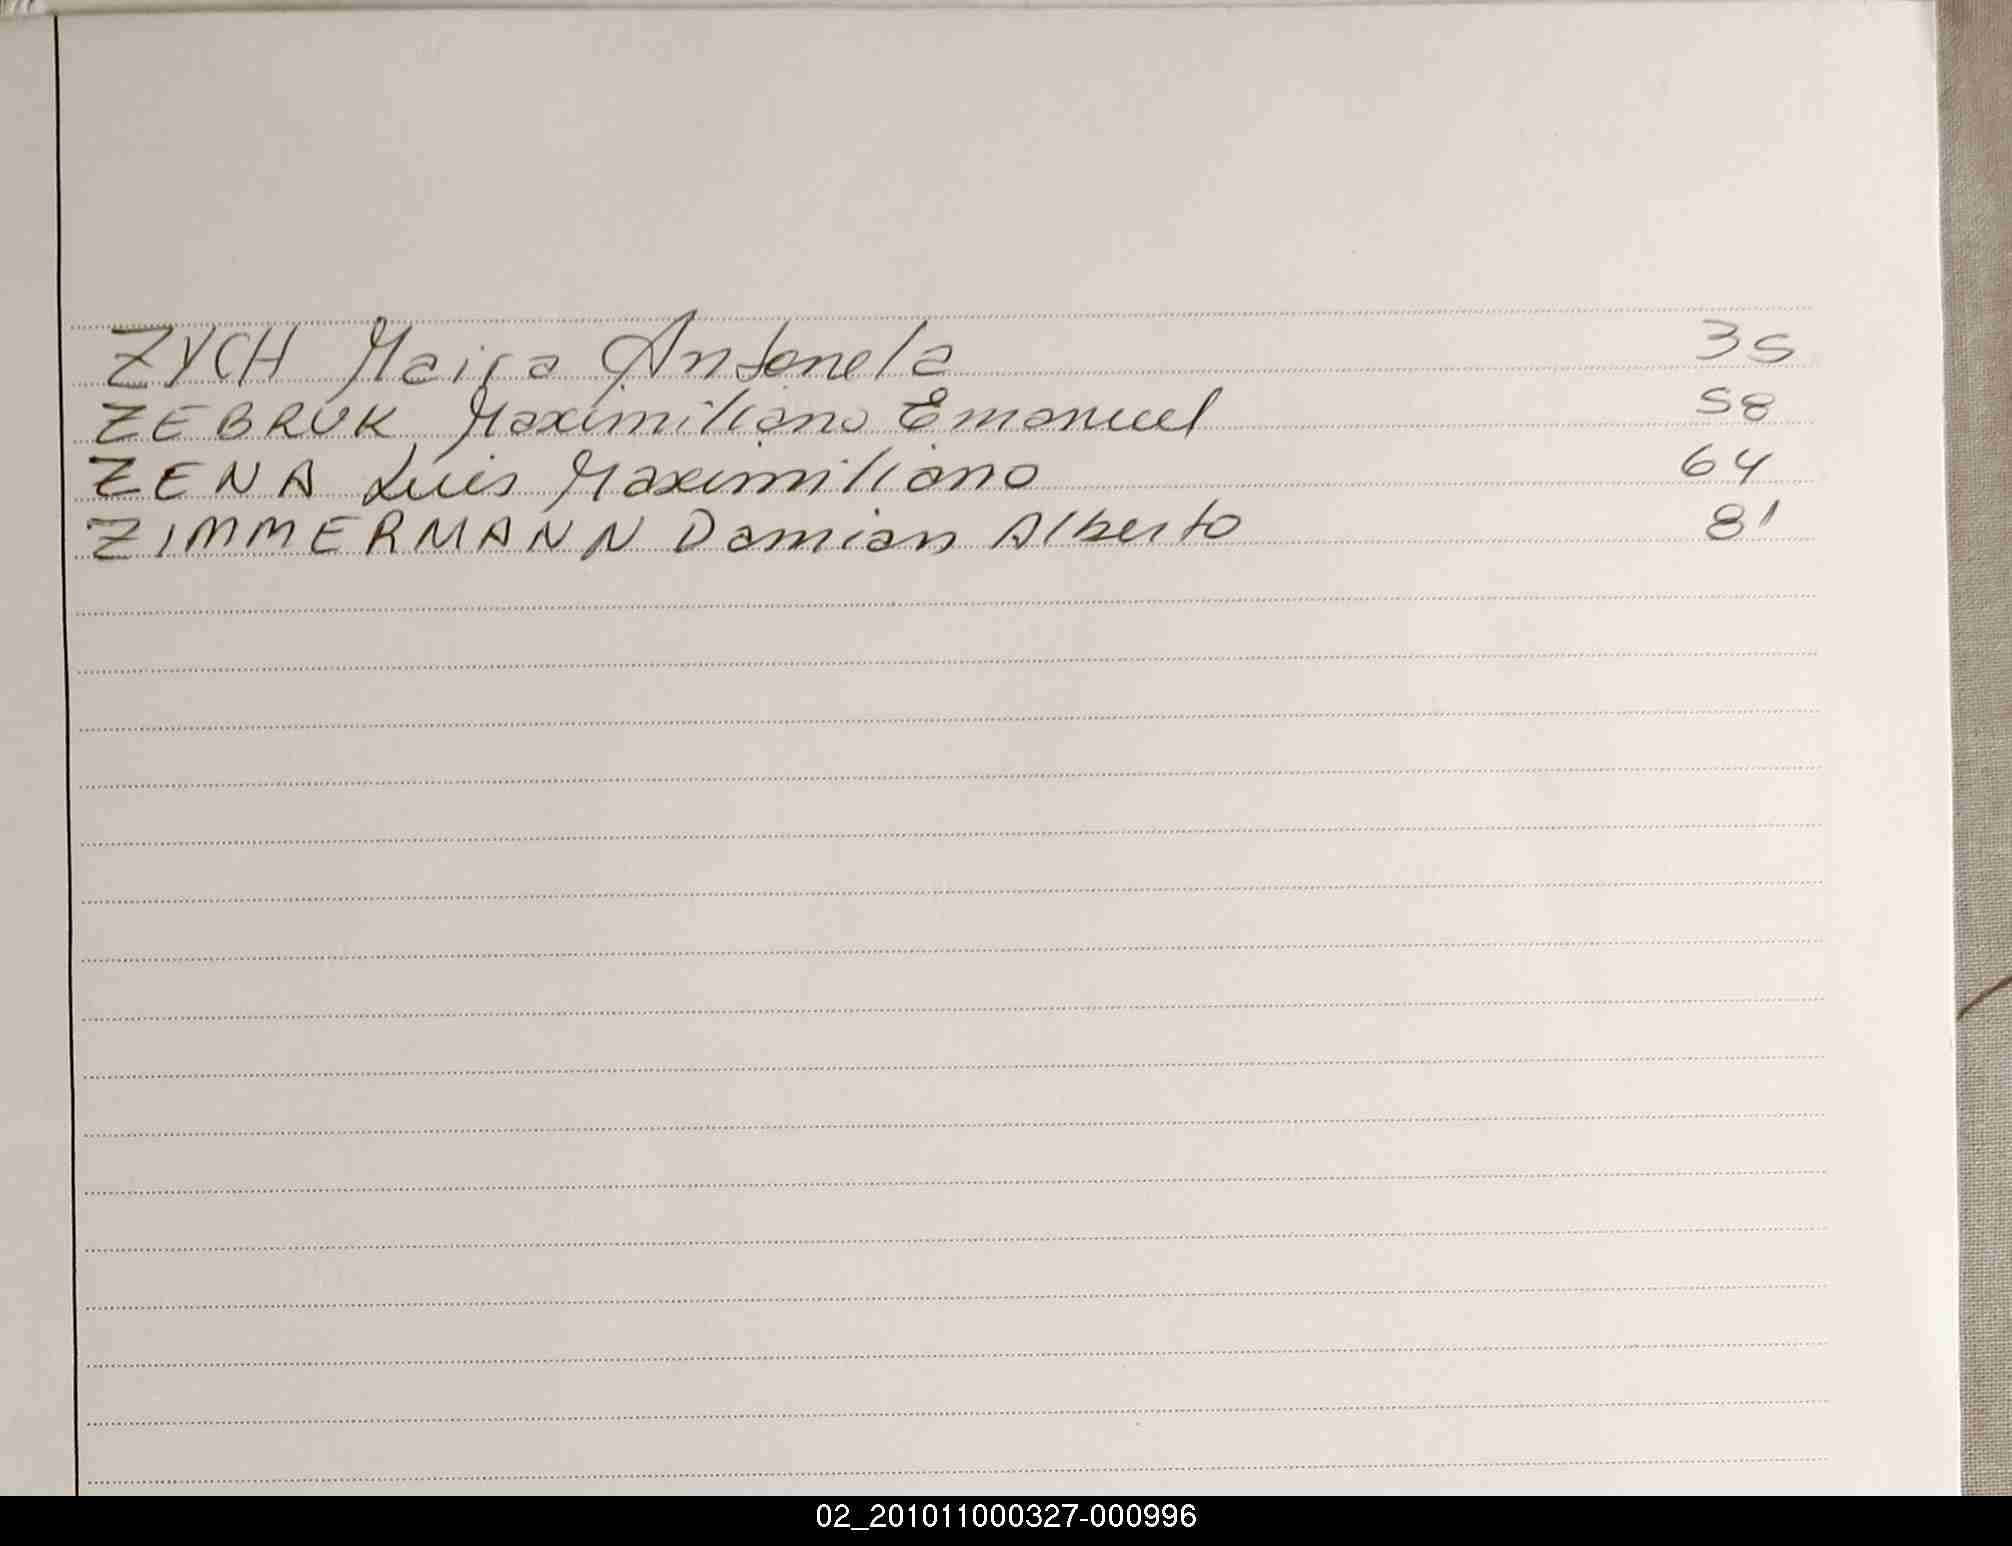 ZYCH Maira Antonela 35
ZEBRUK Maximiliano Emanuel 58
ZENA Luis Maximiliano 64
ZIMMERMANN Damian Alberto 81
02_201011000327-000996